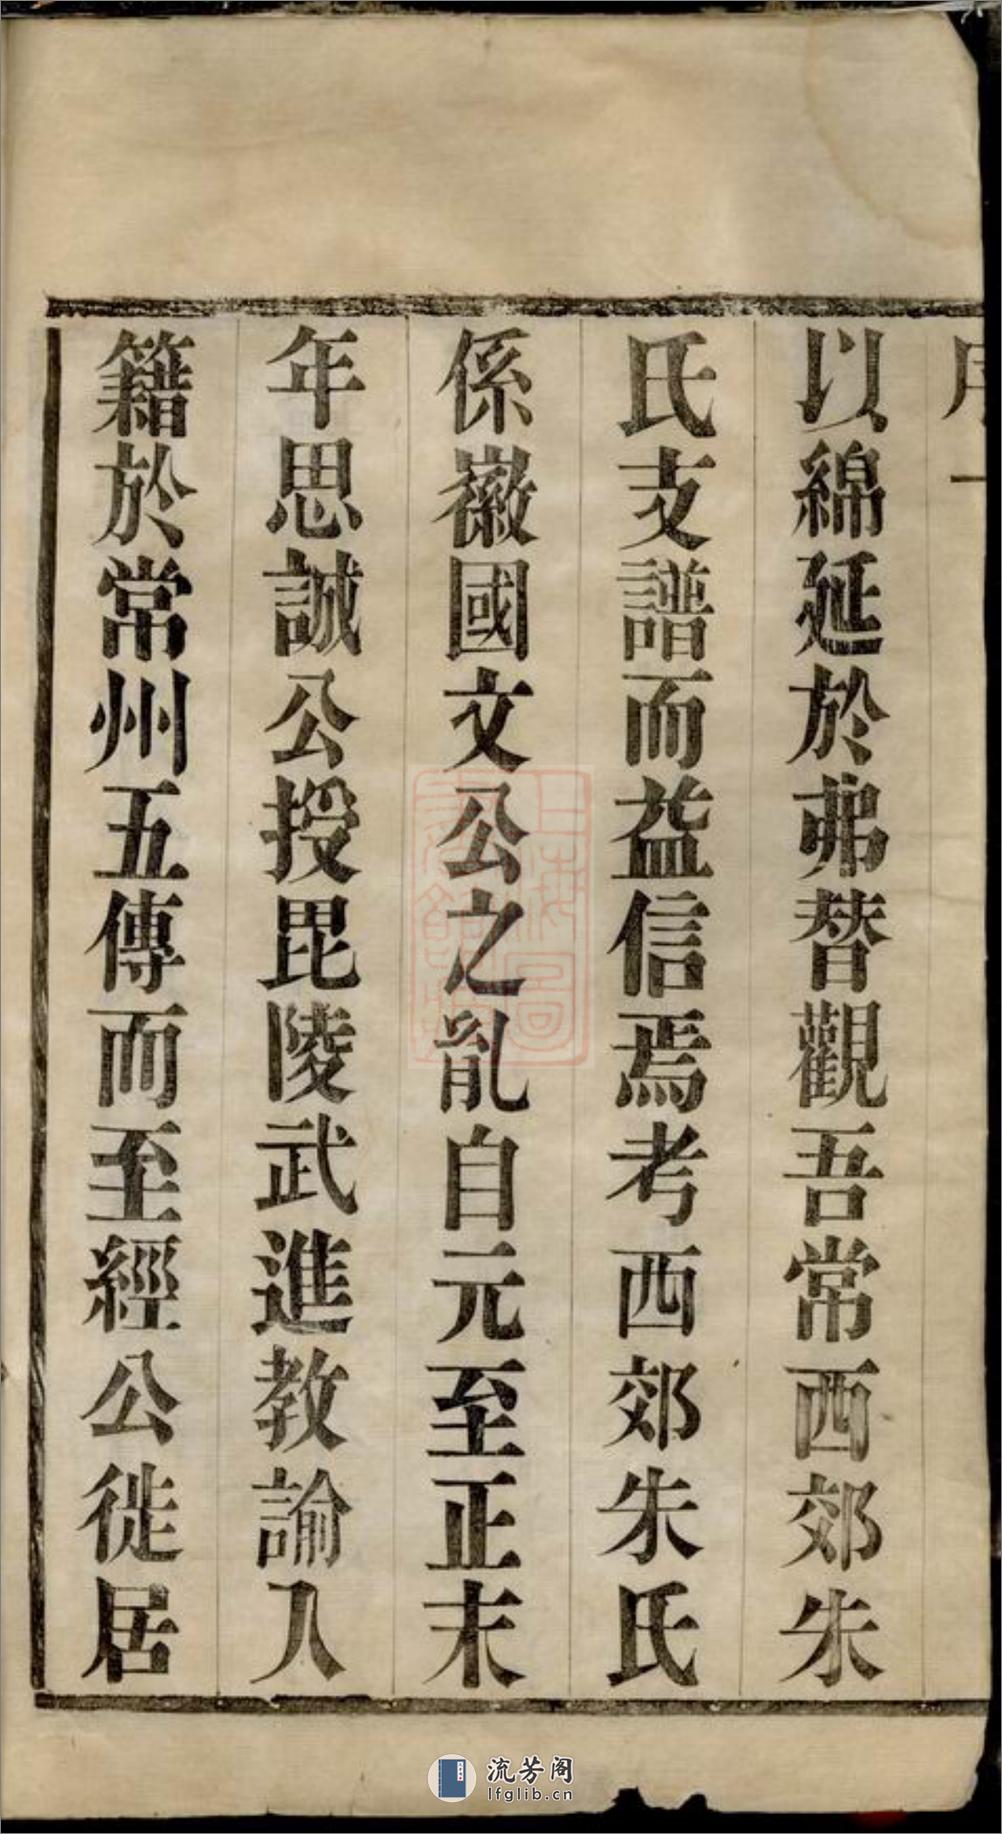 序 一
以綿延於弗替觀吾常西郊朱
氏支譜而益信焉考西郊朱氏
係徽國文公之胤自元至正末
年思誠公授毘陵武進教諭入
籍於常州五傳而至經公徙居
流芳阁
lfglib.cn